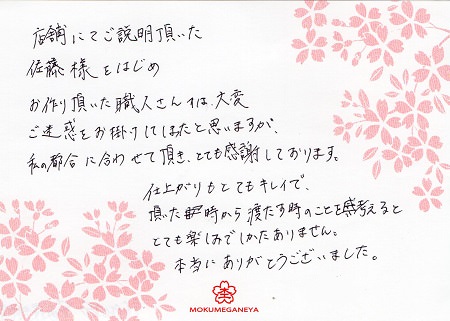 店舗にてご説明頂いた
佐藤様をはじめ
お作り頂いた職人さんは、大変
ご迷惑をお掛けしてしまたと思いますが、
私の都合に合わせて頂き、とても感謝しております。
仕上がりもとてもキレイで、
頂いた時から渡たす時のことを考えると
とても楽しみでしかたありません。
本当にありがとうございました。
MOKUMEGANEYA